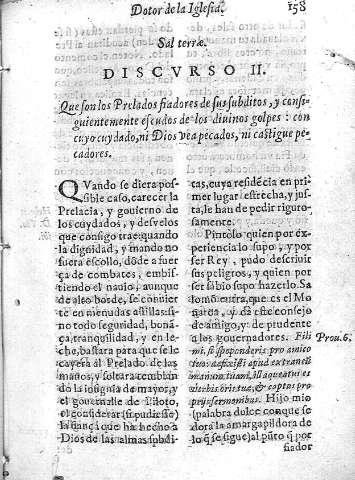 Dotor de la Iglesia. 158
Sal terræ.
DISCVRSO II.
Que son los Prelados fiadores de sus subditos, y consi-
guientemente escudos de los diuinos golpes: con
cuyo cuydado, ni Dios vea pecados, ni castigue pe-
cadores.
QVando se diera pos-
sible caso, carecer la
Prelacia, y gouierno de
los cuydados, y desvelos
que consigo trae quando
la dignidad, y mando no
fuera escollo, dõde a fuer
ça de combates, embis-
tiendo el nauio, aunque
de alto borde, se conuier
te en menudas astillas: si-
no todo seguridad, bonã-
ça, tranquilidad, y en le-
che, bastara para que se le
cayera al Prelado de las
manos, y soltara temblan
do la insignia de mayor, y
el gouernalle de Piloto,
el considerar (su pudiesse)
la fiança que ha hecho a
Dios de las almas subdi-
tas, cuya residẽcia en pri-
mer lugar estrecha, y jus-
ta, le han de pedir riguro-
samente.
Pintolo quien por ex-
periencia lo supo, y por
ser Rey, pudo descriuir
sus peligros, y quien por
ser sabio supo hazerlo. Sa
lomõ entra, que es el Mo
narca, y da este consejo
de amigo, y de prudente
a los gouernadores. Fili
mi, si spoponderis pro amico
tuo: defixisti apud extraneũ
manum tuam, illaqueatus es
verbis oris tui, & captus pro
prijs sermonibus. Hijo mio
(palabra dulce con que se
dora la amarga pildora de
lo q̃ se sigue) al pũto q̃ por
fiador
Prou. 6.